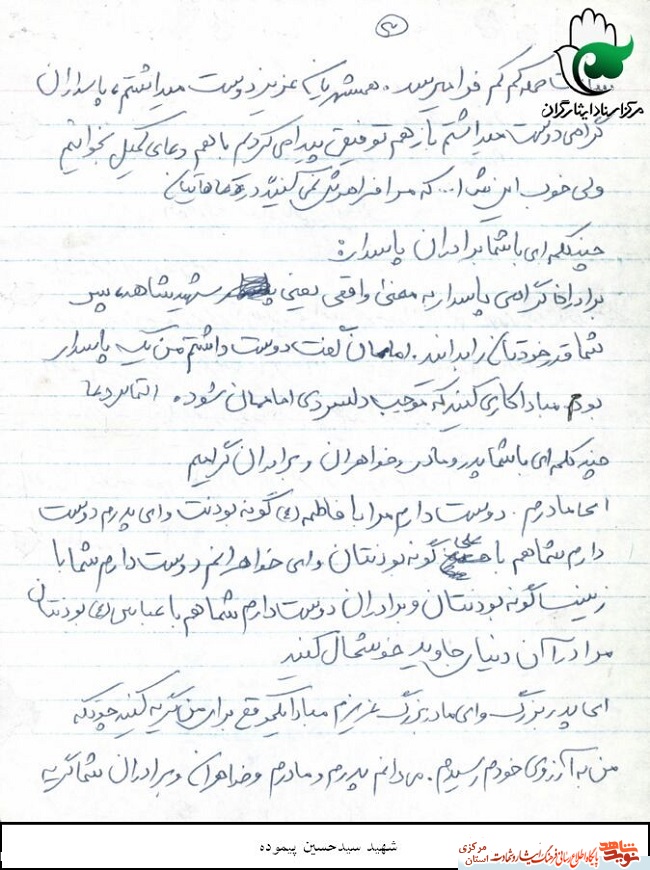 ۳
مرکز اسناد ایثارگران
حمله کم کم فرا میرسد. همشهریان عزیز دوست میداشتم، پاسداران
گرامی دوست میداشتم باز هم توفیق پیدا می کردم با هم دعای کمیل بخوانیم
ولی خوب این نشد ... که مرا فراموش نمی کنید در دعاهایتان
چند کلمه ای با شما برادران پاسدار:
برادران گرامی پاسدار به معنی واقعی یعنی شهید شاهد، پس
شما قدر خودتان را بدانید. اماممان گفت دوست داشتم من یک پاسدار
بودم مبادا کاری کنید که موجب دلسردی اماممان شود. التماس دعا
چند کلمه ای با شما پدر و مادر و خواهران و برادران گرامیم
ای مادرم. دوست دارم مرا با فاطمه (س) گونه بودنت و ای پدرم دوست
دارم شما هم با علی گونه بودنتان و ای خواهرانم دوست دارم شما با
زینب گونه بودنتان و برادران دوست دارم شما هم با عباس (ع) بودنتان
مرا در آن دنیای جاوید خوشحال کنید
ای پدر بزرگ و ای مادر بزرگ عزیزم مبادا یکموقع برای من گریه کنید چونکه
من به آرزوی خودم رسیدم. می دانم پدرم و مادرم و خواهران و برادران شما گریه
شهید سیدحسین پیموده
نوید شاهد
پایگاه اطلاع رسانی فرهنگ ایثار و شهادت
استان مرکزی